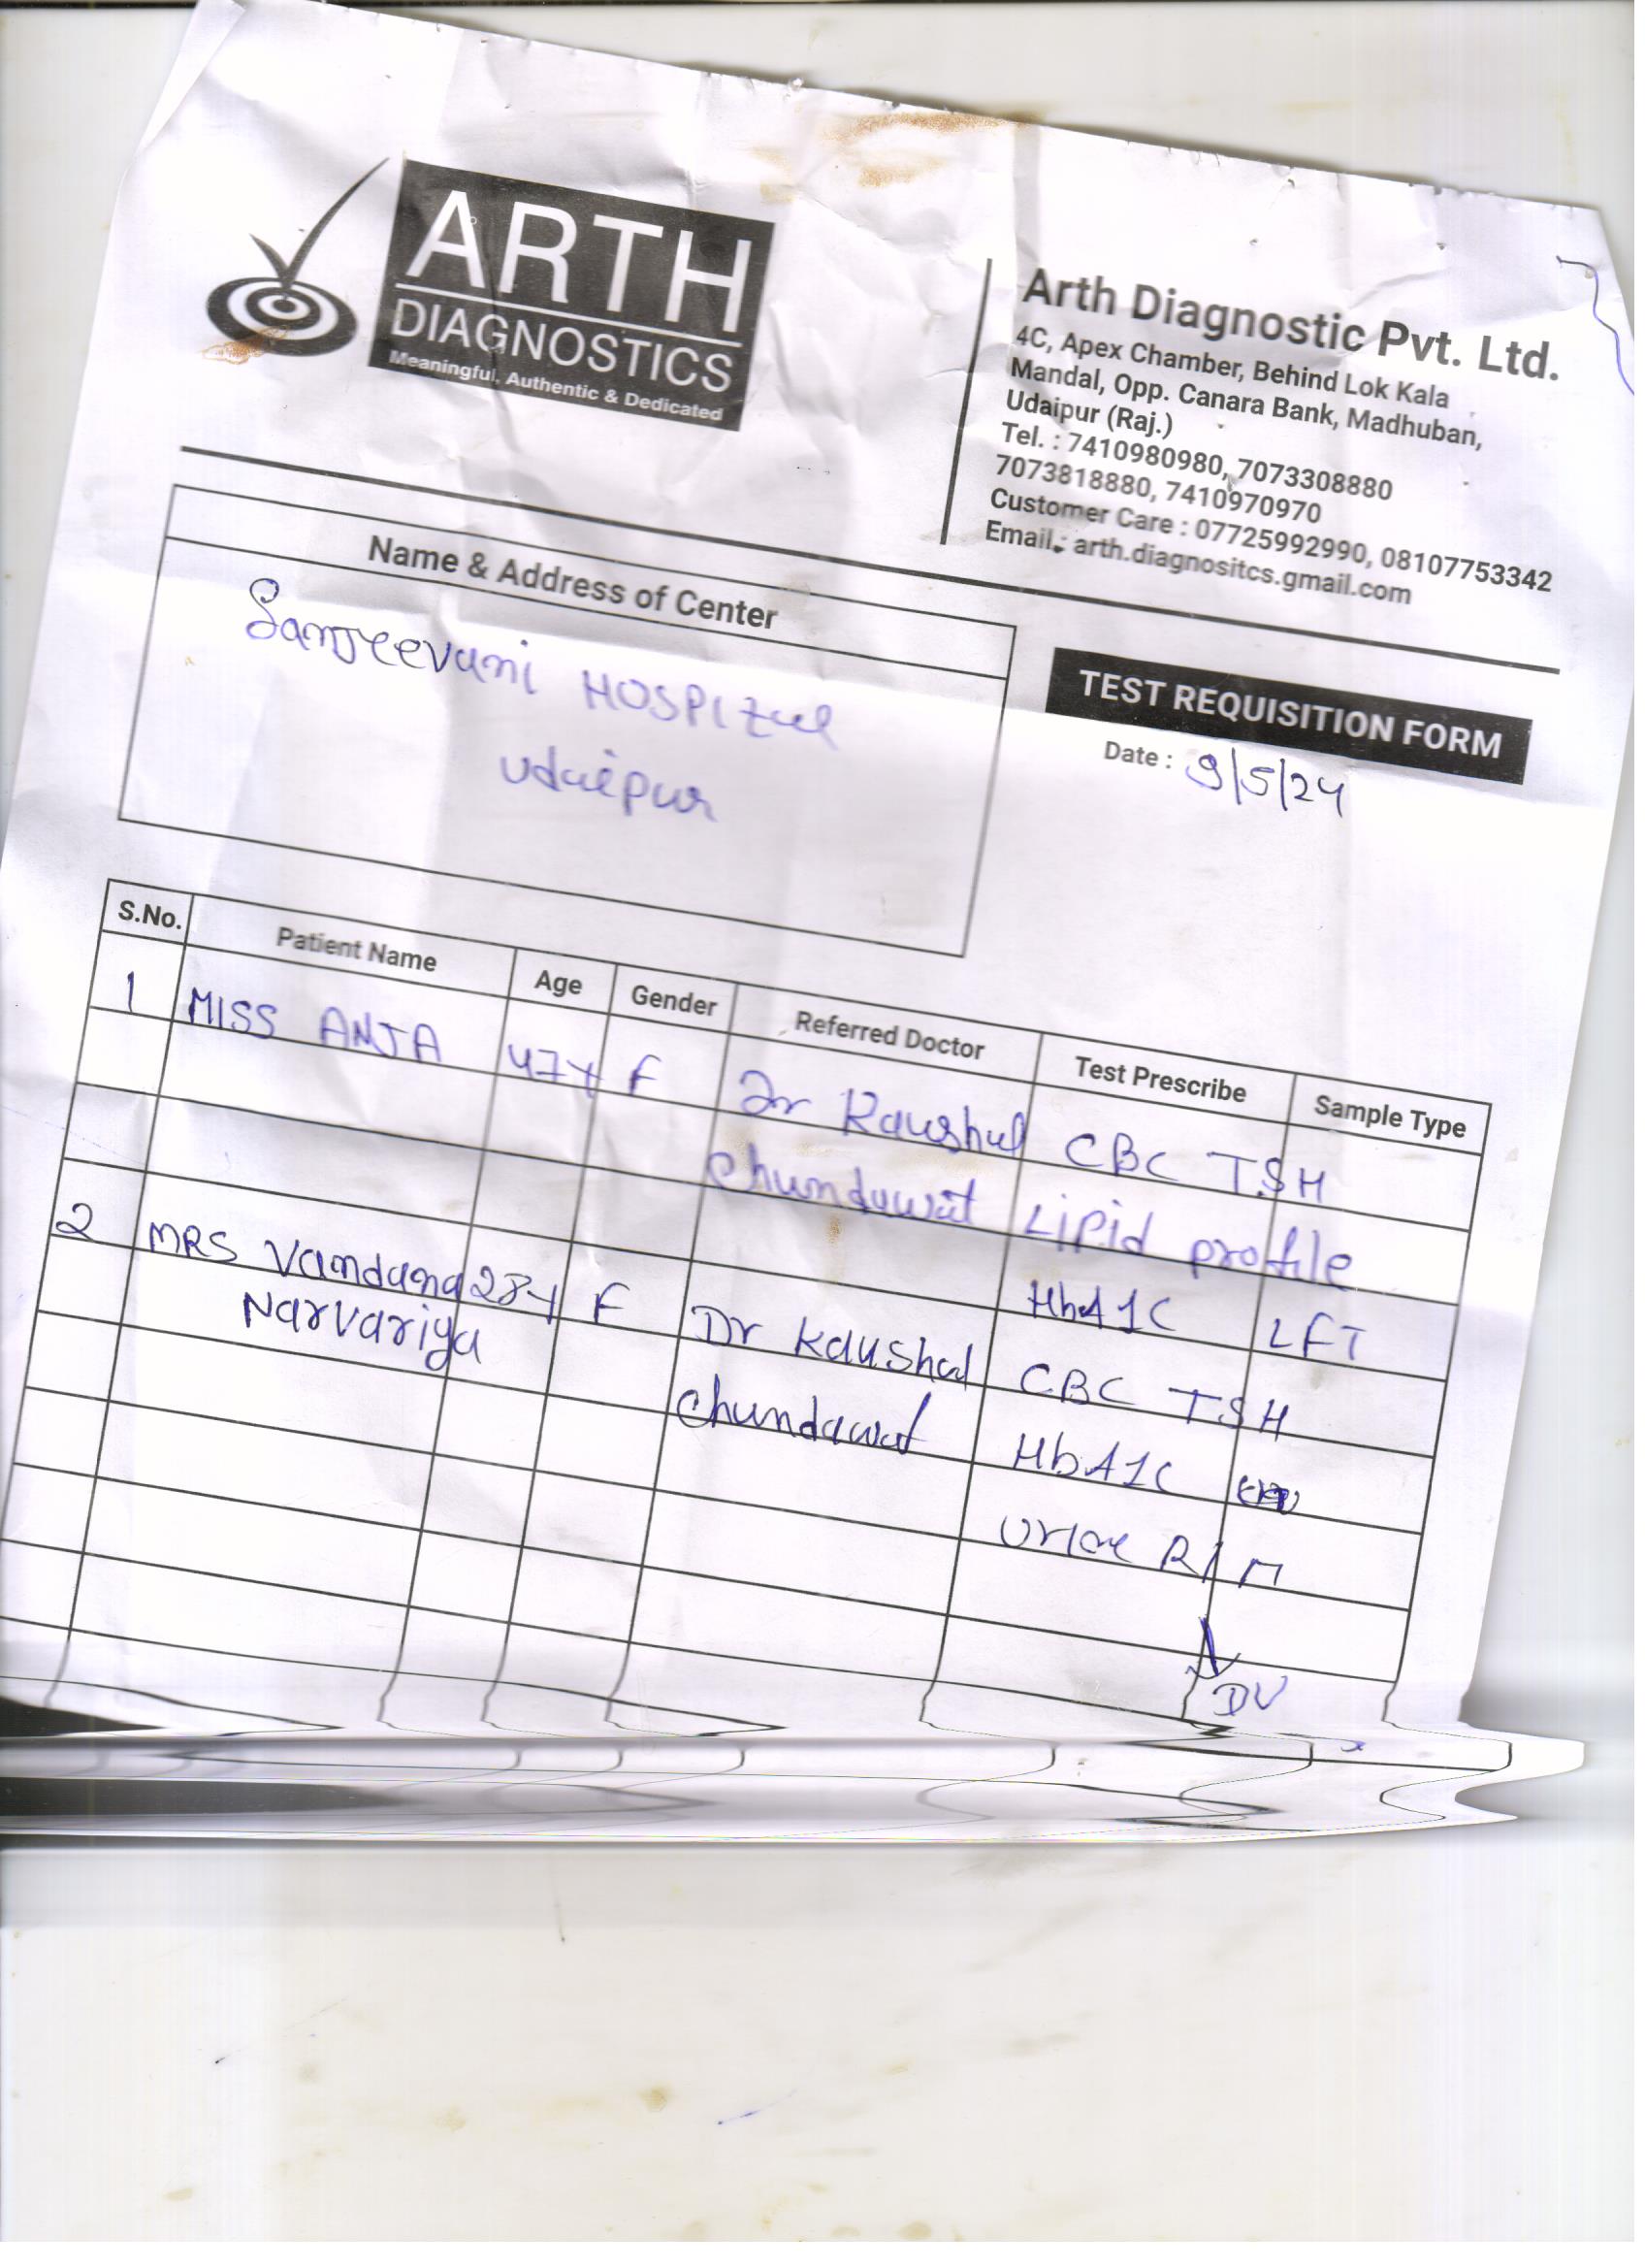 ARTH
DIAGNOSTICS
Meaningful, Authentic & Dedicated
Arth Diagnostic Pvt. Ltd.
4C, Apex Chamber, Behind Lok Kala
Mandal, Opp. Canara Bank, Madhuban,
Udaipur (Raj.)
Tel. : 7410980980, 7073308880
7073818880, 7410970970
Customer Care : 07725992990, 08107753342
Email.: arth.diagnositcs.gmail.com
Name & Address of Center
Sanjeevani HOSPItal
Udaipur
TEST REQUISITION FORM
Date : 9/5/24
S.No. Patient Name Age Gender Referred Doctor Test Prescribe Sample Type
1 MISS ANJA 47Y F Dr Kaushal CBC TSH
Chundawat Lipid profile
HbA1C LFT
2 MRS Vandana 28Y F Dr Kaushal CBC TSH
Narvariya Chundawat HbA1C
Urine R/M
DV